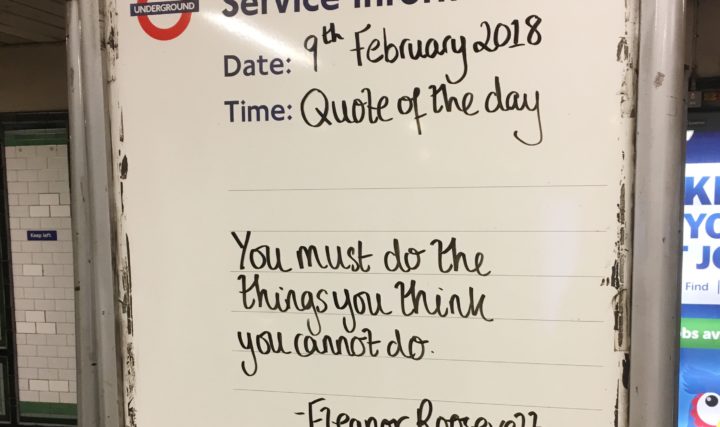 UNDERGROUND
Service Inform
Date: 9th February 2018
Time: Quote of the day
You must do the
things you think
you cannot do.
- Eleanor Roosevelt
Keep left
Find